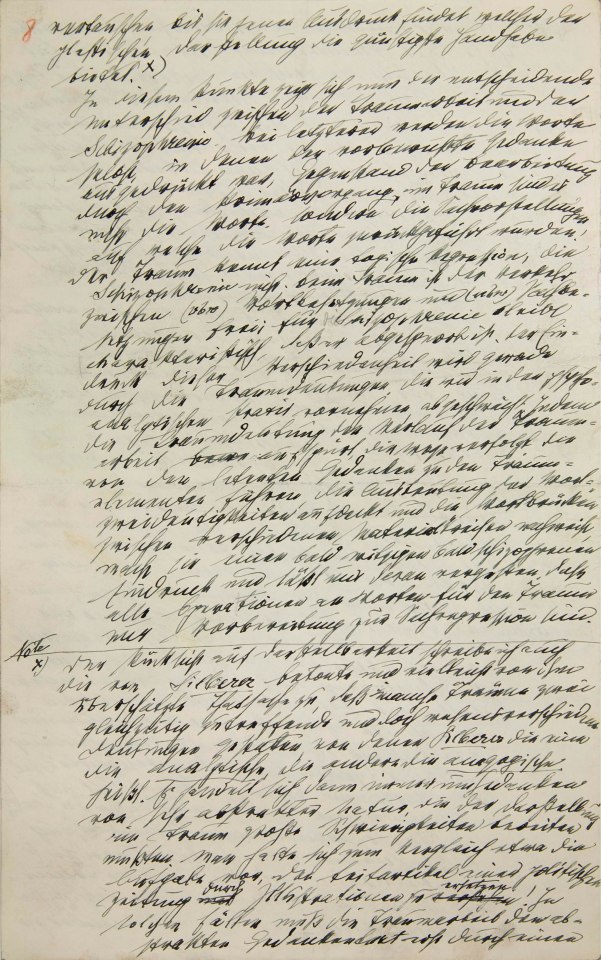 8 vertauschen bis sie jenen Ausdruck findet, welcher der
plastischen Darstellung die günstigste Handhabe
bietet. x)
In diesem Punkte zeigt sich nun der entscheidende
Unterschied zwischen der Traumarbeit und der
Schizophrenie. Bei letzterer werden die Worte
selbst, in denen der vorbewußte Gedanke
ausgedrückt war, Gegenstand der Bearbeitung
durch den Primärvorgang, im Traum sind es
nicht die Worte, sondern die Sachvorstellungen
auf welche die Worte zurückgeführt wurden.
Der Traum kennt eine topische Regression, die
Schizophrenie nicht. beim Traume ist der Verkehr
zwischen (vbw) Wortbesetzungen und (ubw) Sachbe-
setzungen frei, für Schizophrenie bleibt
charakteristisch, daß er abgesperrt ist. Der Ein-
druck dieser Verschiedenheit wird gerade
durch die Traumdeutungen die wir in der psycho-
analytischen Praxis vornehmen abgeschwächt. Indem
die Traumdeutung den Verlauf der Traum-
arbeit aufspürt, die Wege verfolgt die
von den latenten Gedanken zu den Traum-
elementen führen, die Ausbeutung der Wort-
zweideutigkeiten aufdeckt und die Wortbrücken
zwischen verschiedenen Materialkreisen nachweist
macht sie einen bald witzigen bald schizophrenen
Eindruck und läßt uns daran vergessen, daß
alle Operationen an Worten für den Traum
nur Vorbereitung zur Sachregression sind.
Note
x) Der Rücksicht auf Darstellbarkeit schreibe ich auch
die von Silberer betonte und vielleicht von ihm
überschätzte Thatsache zu, daß manche Träume zwei
gleichzeitig zutreffende und doch wesensverschiedene
Deutungen gestatten von denen Silberer die eine
die analytische, die andere die anagogische
heißt. Es handelt sich dann immer um Gedanken
von sehr abstrakter Natur, die der Darstellung
im Traum große Schwierigkeiten bereiten
mußten. Man halte sich zum Vergleich etwa die
Aufgabe vor, den Leitartikel einer politischen
Zeitung durch Illustrationen zu ersetzen! In
solchen Fällen muß die Traumarbeit den ab-
strakten Gedankentext erst durch einen